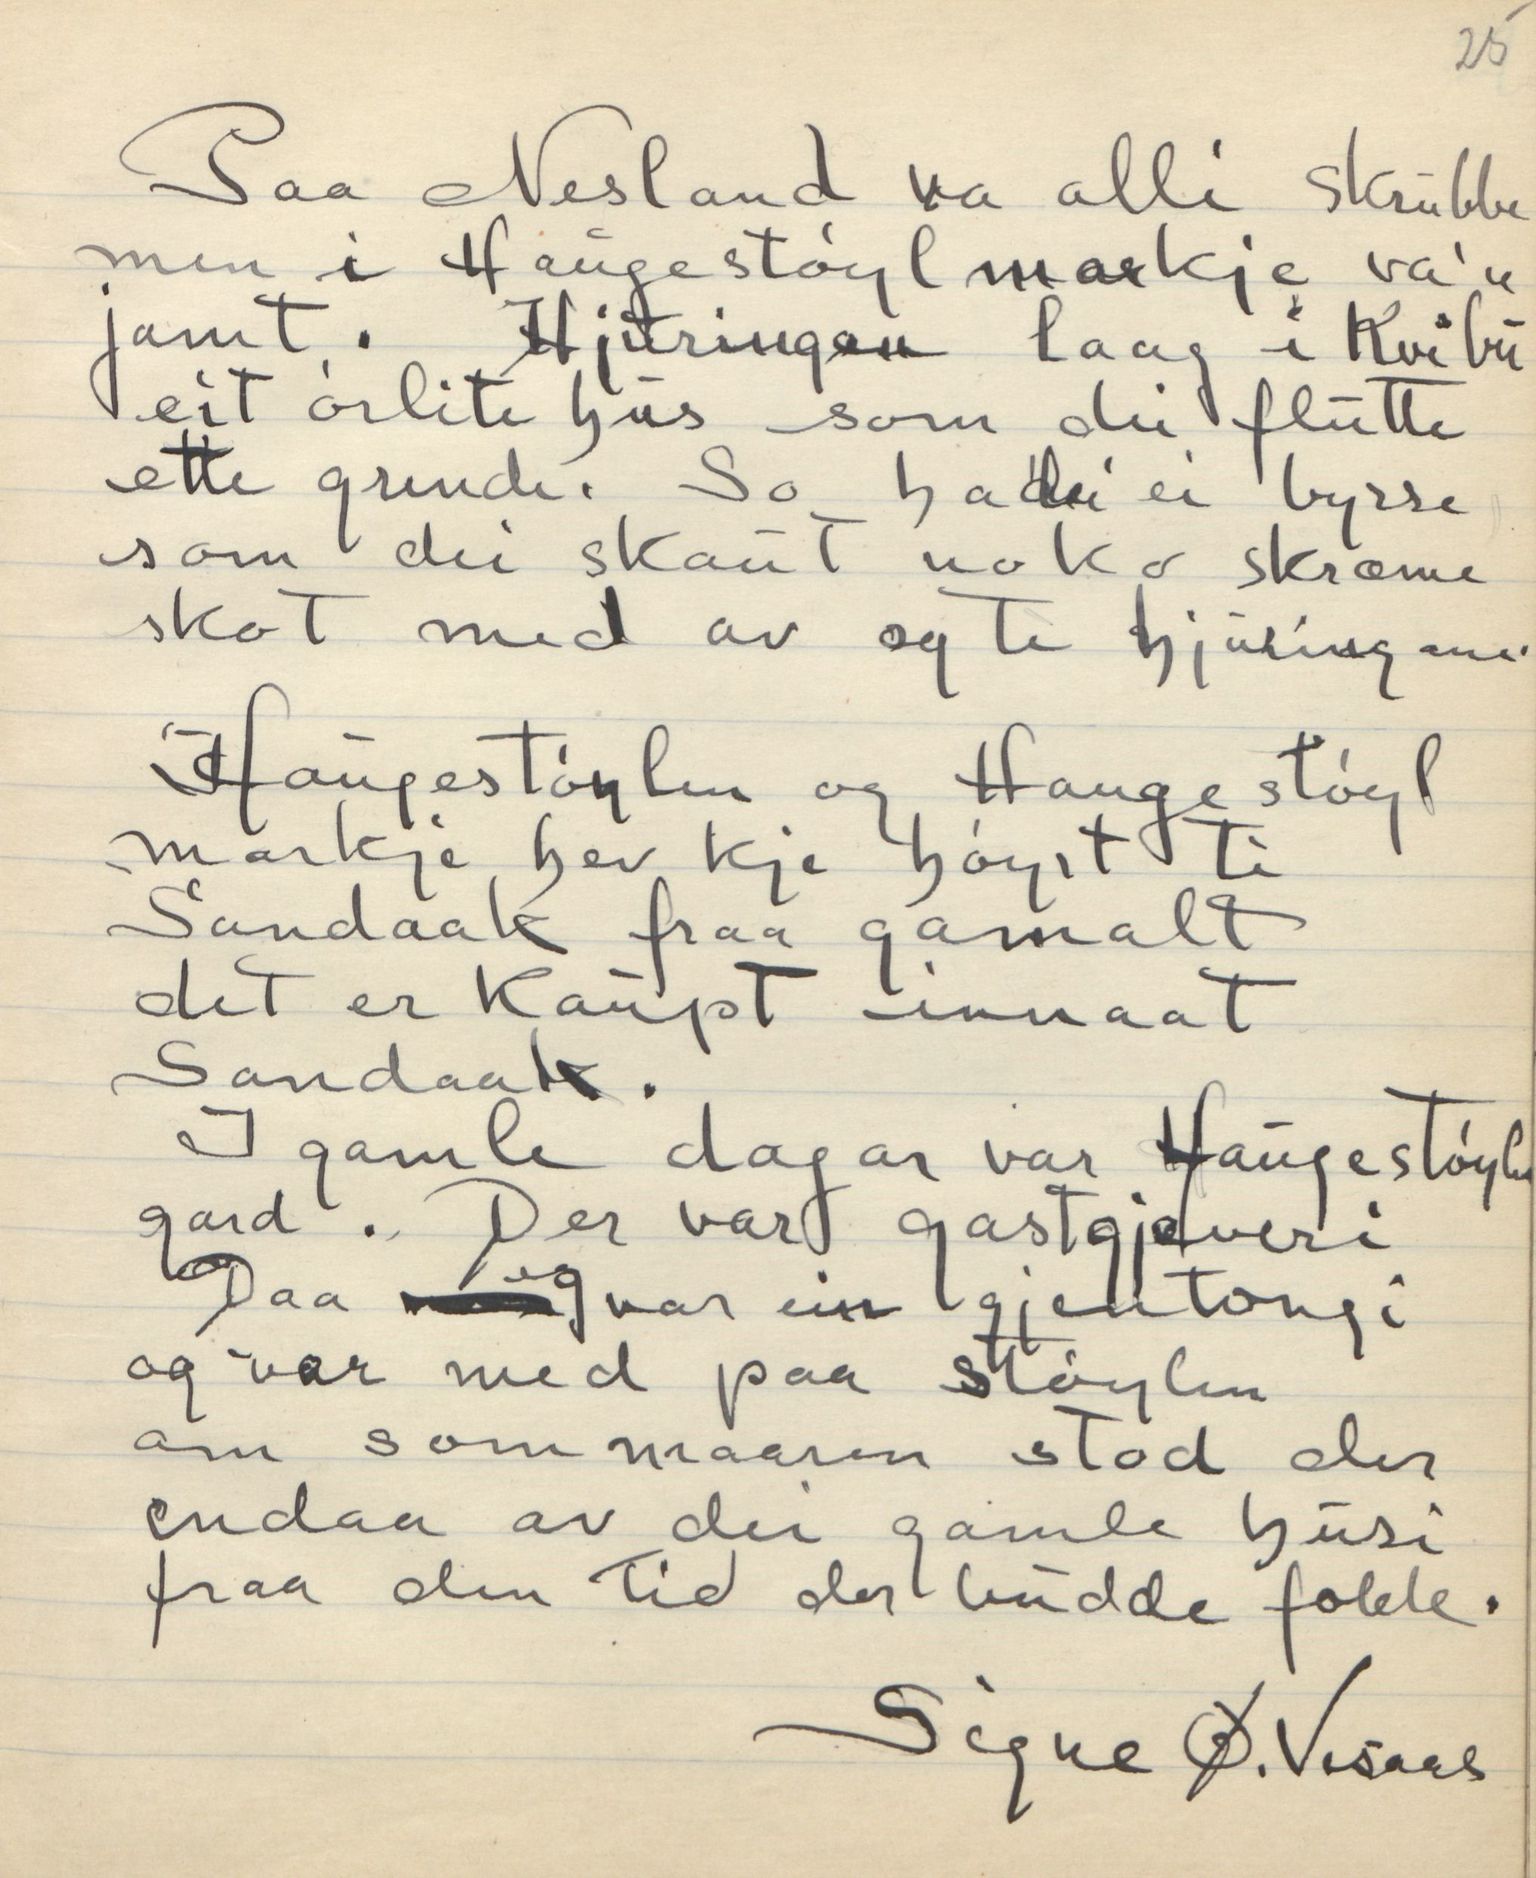 25
Paa Nesland va alli skrubbe
men i Haugestóyl markje va'n
jamt. Hjuringen laag i Kvibu
eit órlite hus som dei flutte
ette grende. So hadei ei byrse
som dei skaut noko skræme
skot med av og te hjuringane.
Haugestóylen og Haugestóyl
markje hev kje hóyrt ti
Sandaak fraa gamalt
det er kaupt innaat
Sandaak.
I gamle dagar var Haugestóylen
gard. Der var gastgjeveri
Daa eg var ein gjentongi
og var med paa stóylen
om sommaaren stod der
endaa av dei gamle husi
fraa den tid der budde folk.
Signe Ø. Vesaas